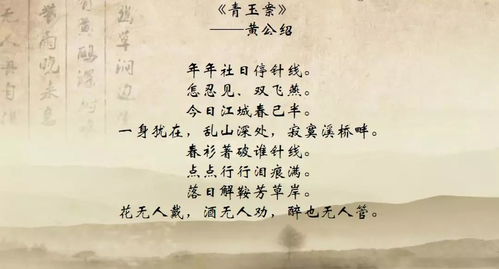 《青玉案》
——黄公绍
年年社日停针线。
怎忍见、双飞燕。
今日江城春已半。
一身犹在，乱山深处，寂寞溪桥畔。
春衫著破谁针线。
点点行行泪痕满。
落日解鞍芳草岸。
花无人戴，酒无人劝，醉也无人管。